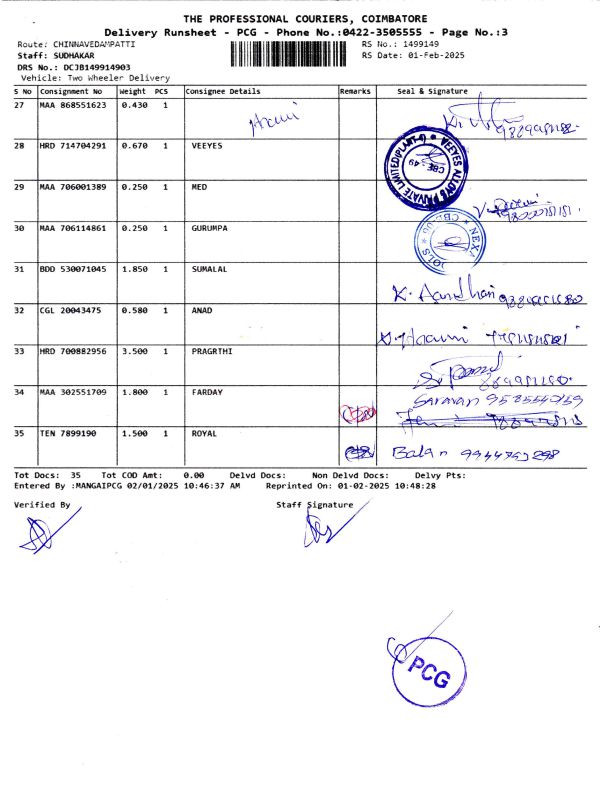 THE PROFESSIONAL COURIERS, COIMBATORE
Delivery Runsheet - PCG - Phone No.:0422-3505555 - Page No.:3
Route: CHINNAVEDAMPATTI RS No.: 1499149
Staff: SUDHAKAR RS Date: 01-Feb-2025
DRS No.: DCJB149914903
Vehicle: Two Wheeler Delivery
S No Consignment No Weight PCS Consignee Details Remarks Seal & Signature
27 MAA 868551623 0.430 1
28 HRD 714704291 0.670 1 VEEYES
VEEYES ALLOYS PRIVATE LIMITED(PLANT-I)
CBE-49
29 MAA 706001389 0.250 1 MED
30 MAA 706114861 0.250 1 GURUMPA
31 BDD 530071045 1.850 1 SUMALAL
32 CGL 20043475 0.580 1 ANAD
33 HRD 700882956 3.500 1 PRAGRTHI
34 MAA 302551709 1.800 1 FARDAY Saravan
35 TEN 7899190 1.500 1 ROYAL Balan
Tot Docs: 35 Tot COD Amt: 0.00 Delvd Docs: Non Delvd Docs: Delvy Pts:
Entered By :MANGAIPCG 02/01/2025 10:46:37 AM Reprinted On: 01-02-2025 10:48:28
Verified By Staff Signature
PCG